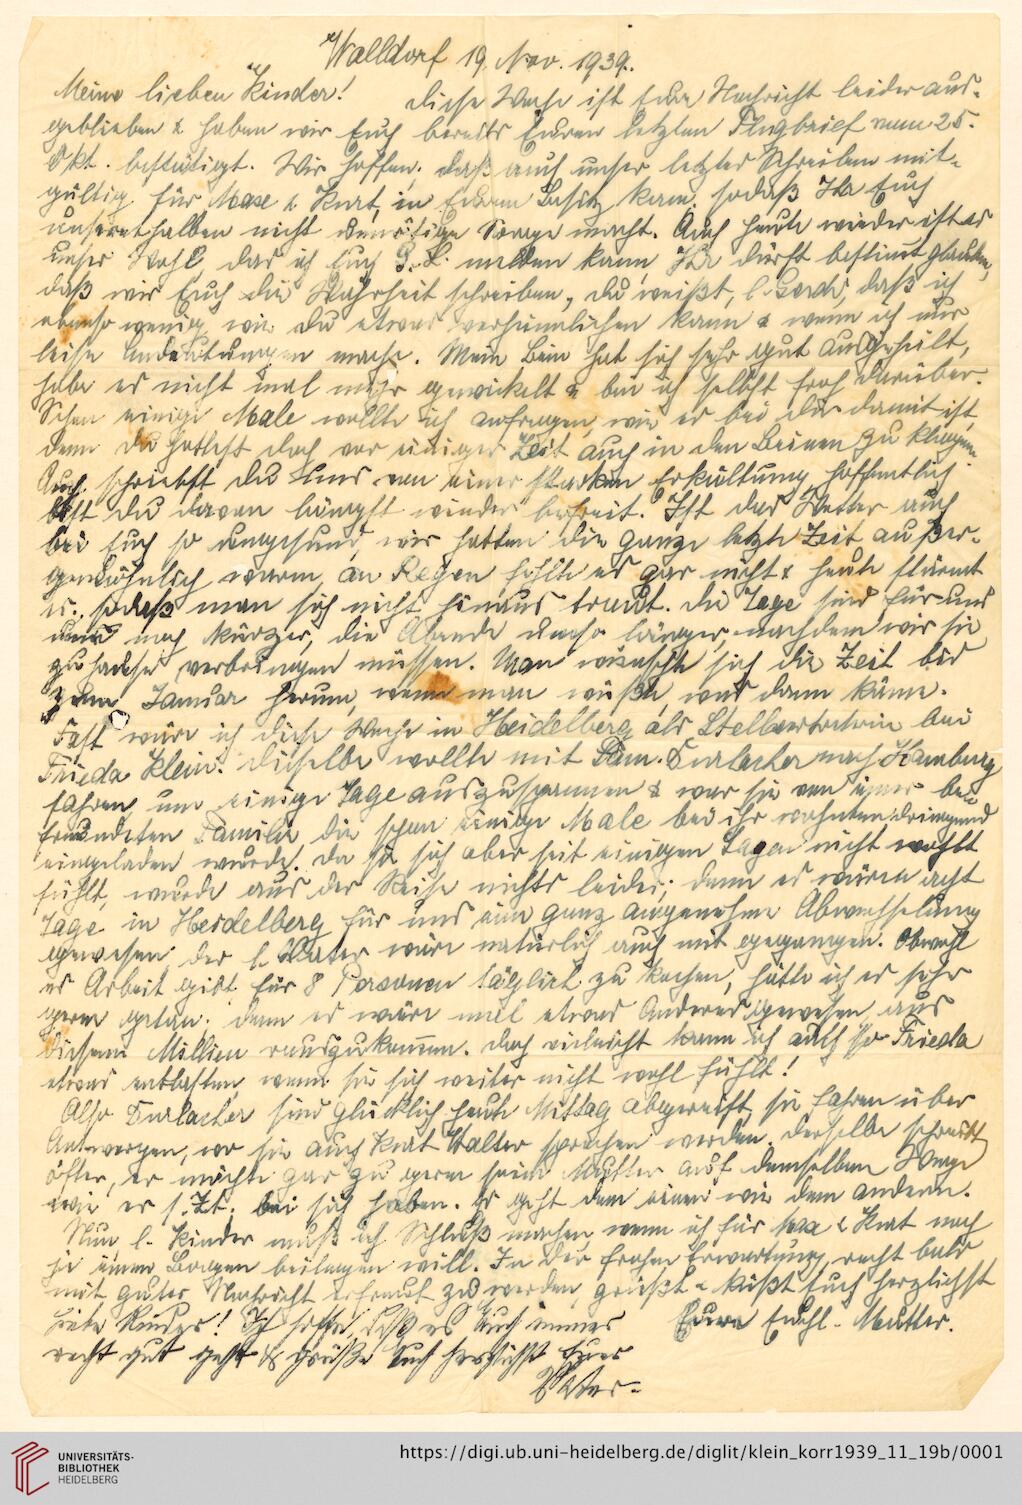 Walldorf 19. Nov. 1939.
Meine lieben Kinder! Diese Woche ist Eure Nachricht leider aus-
geblieben & haben wir Euch bereits Euren letzten Flugbrief vom 25.
Okt. bestätigt. Wir hoffen, daß auch unser letztes Schreiben mit-
gültig für Max & Kurt, in Euren Besitz kam, sodaß Ihr Euch
unserethalben nicht unnötige Sorge macht. Auch heute wieder ist es
unser Wohl, das ich Euch G. L. melden kann, Ihr dürft bestimmt glauben,
daß wir Euch die Wahrheit schreiben, Du weißt, l. daß ich
ebenso wenig wie Du etwas verheimlichen kann & wenn ich nur
leise Andeutungen mache. Mein Bein hat sich sehr gut ausgeheilt,
habe es nicht mal mehr gewickelt & bin ich selbst froh darüber.
Schon einige Male wollte ich anfragen, wie es bei Dir damit ist,
denn Du hattest doch vor einiger Zeit auch in den Beinen zu klagen.
Auch schriebst Du uns von einer starken Erkältung, hoffentlich
bist Du davon längst wieder befreit. Ist das Wetter auch
bei Euch so ungesund, wir hatten die ganze letzte Zeit außer-
gewöhnlich warm, an Regen fehlte es gar nicht & heute stürmt
es, sodaß man sich nicht hinaus traut. Die Tage sind für uns
noch kürzer, die Abende umso länger, nachdem wir sie
zuhause verbringen müssen. Man wünscht sich die Zeit bis
zum Januar herum, wenn man wüßte, was dann käme.
Fast wäre ich diese Woche in Heidelberg als Stellvertreterin bei
Frieda Klein. Dieselbe wollte mit Fam. Durlacher nach Hamburg
fahren, um einige Tage auszuspannen & war sie von einer be-
freundeten Familie die schon einige Male bei ihr wohnten dringend
eingeladen wurde. Da sie sich aber seit einigen Tagen nicht wohl
fühlt, wurde aus der Reise nichts leider, denn es wären acht
Tage in Heidelberg für uns eine ganz angenehme Abwechselung
gewesen der l. Vater wäre natürlich auch mit gegangen. Obwohl
es Arbeit gibt für 8 Personen täglich zu kochen, hätte ich es sehr
gerne getan, denn es wäre mal etwas Anderes gewesen, aus
diesem Millieu rauszukommen. Doch vielleicht kann ich auch so Frieda
etwas entlasten wenn sie sich weiter nicht wohl fühlt!
Also Durlacher sind glücklich heute Mittag abgereist, sie fahren über
Antwerpen, wo sie auch Kurt Walter sprechen werden. Derselbe schreibt
öfter, er möchte gar zu gerne seine Mutter auf demselben Wege
wie er s. Zt. bei sich haben. Es geht dem einen wie dem anderen.
Nun, l. Kinder muß ich Schluß machen wenn ich für Max & Kurt noch
je einen Bogen beilegen will. In der frohen Erwartung, recht bald
mit guter Nachricht erfreut zu werden, grüßt & küßt Euch herzlichst
Eure Euchl. Mutter.
Liebe Kinder! Ich hoffe, daß es Euch immer
recht gut geht & grüße Euch herzlichst Euer
Vater.
UNIVERSITÄTS-
BIBLIOTHEK
HEIDELBERG
https://digi.ub.uni-heidelberg.de/diglit/klein_korr1939_11_19b/0001